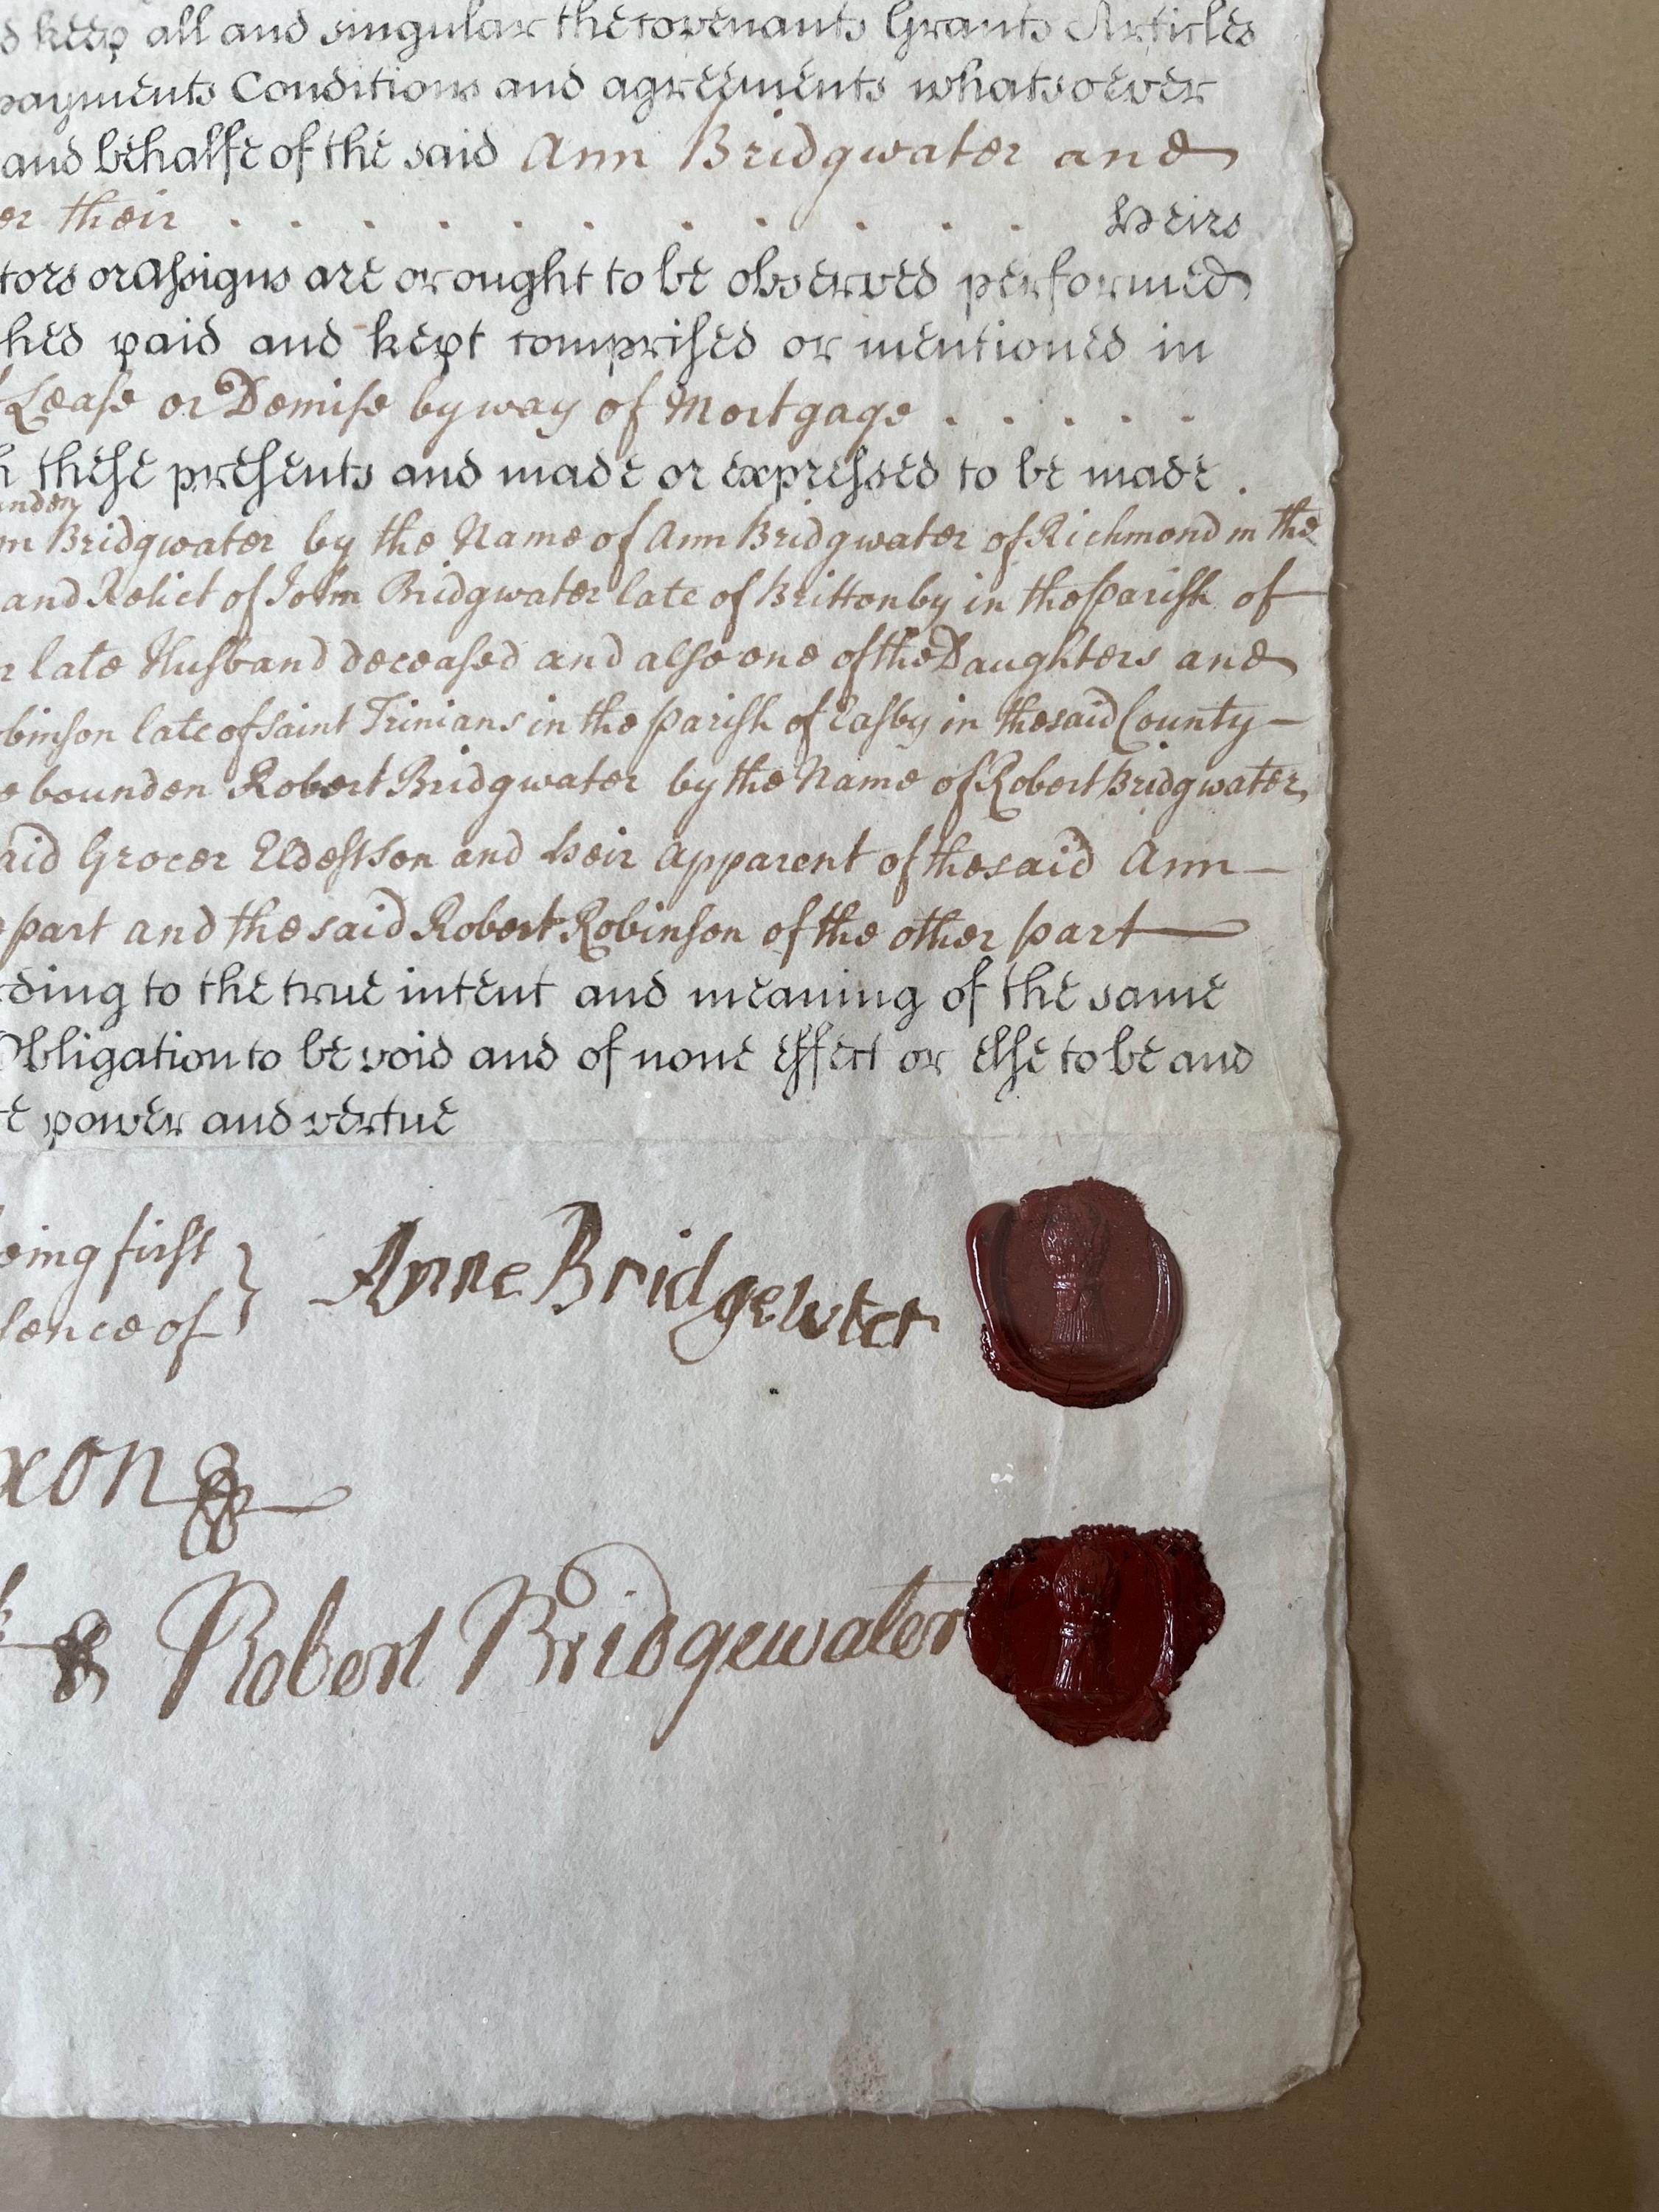 keep all and singular the Covenants Grants Articles
payments Conditions and agreements whatsoever
and behalfe of the said Ann Bridgwater and
er their . . . . . . . . . . . Heirs
tors or Assigns are or ought to be observed performed
hed paid and kept comprised or mentioned in
Lease or Demise by way of Mortgage . . . . .
these presents and made or expressed to be made .
unden
nn Bridgwater by the Name of Ann Bridgwater of Richmond in the
and Relict of John Bridgwater late of Brittonby in the parish of
r late Husband deceased and also one of the Daughters and
obinson late of Saint Trinians in the parish of Easby in the said County
e bounden Robert Bridgwater by the Name of Robert Bridgwater
aid Grocer Eldest Son and heir apparent of the said Ann
part and the said Robert Robinson of the other part
rding to the true intent and meaning of the same
Obligation to be void and of none effect or else to be and
e power and vertue
eing first
sence of
Anne Bridgewter
xon
Robert Bridgewater